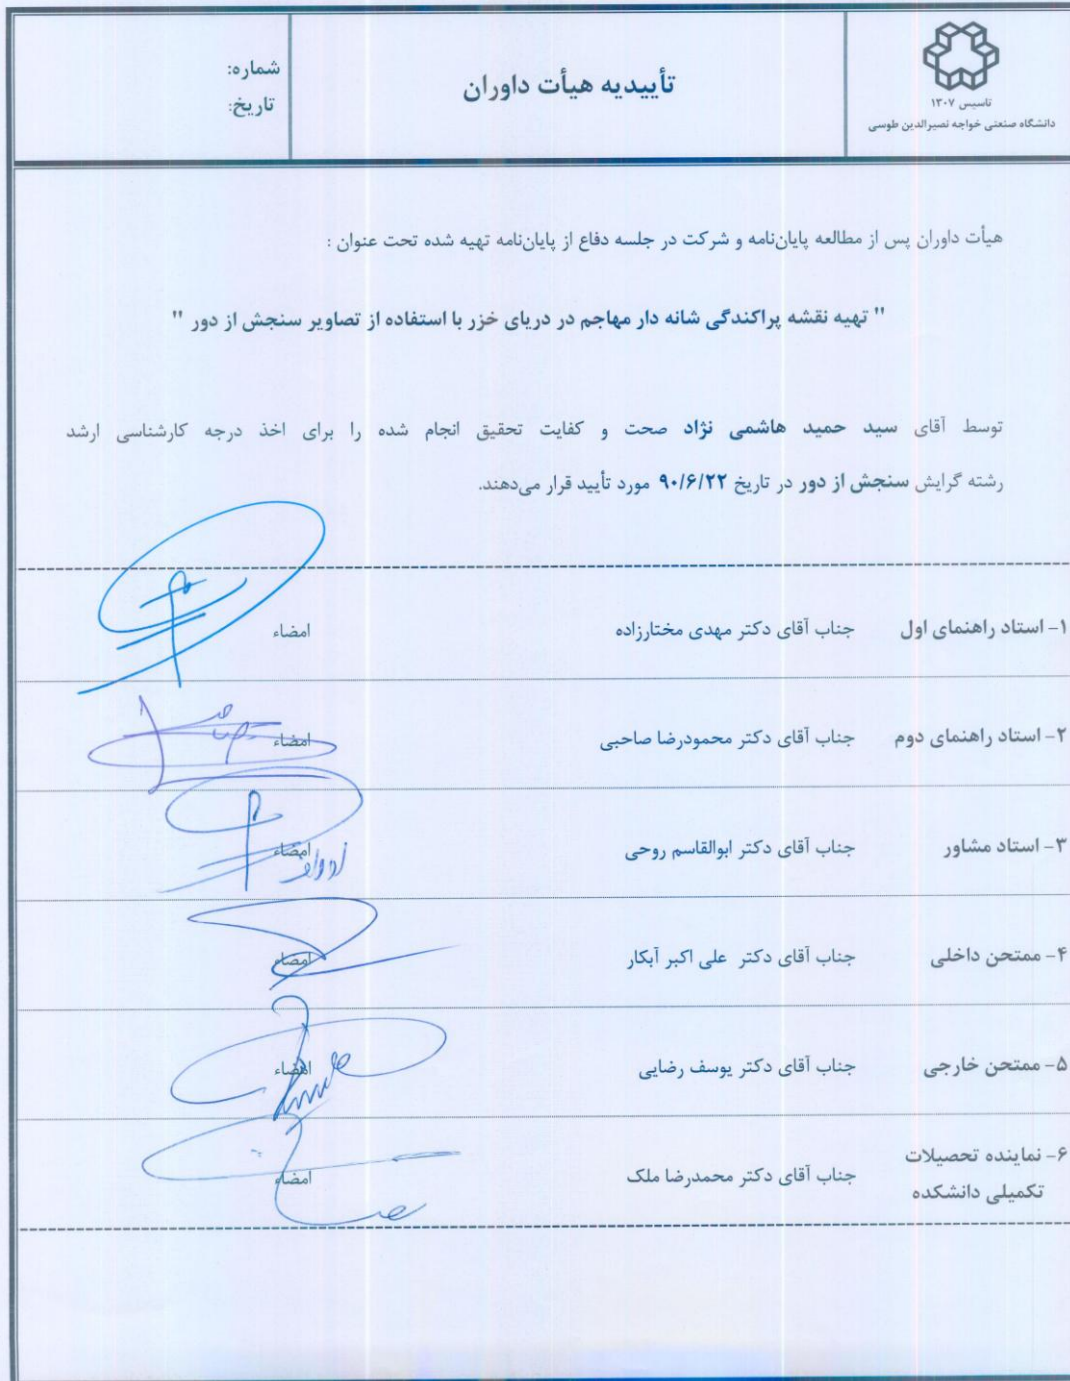 تاسیس ۱۳۰۷
دانشگاه صنعتی خواجه نصیرالدین طوسی
تأییدیه هیأت داوران
شماره:
تاریخ:
هیأت داوران پس از مطالعه پایان‌نامه و شرکت در جلسه دفاع از پایان‌نامه تهیه شده تحت عنوان :
" تهیه نقشه پراکندگی شانه دار مهاجم در دریای خزر با استفاده از تصاویر سنجش از دور "
توسط آقای سید حمید هاشمی نژاد صحت و کفایت تحقیق انجام شده را برای اخذ درجه کارشناسی ارشد
رشته گرایش سنجش از دور در تاریخ ۹۰/۶/۲۲ مورد تأیید قرار می‌دهند.
۱- استاد راهنمای اول جناب آقای دکتر مهدی مختارزاده امضاء
۲- استاد راهنمای دوم جناب آقای دکتر محمودرضا صاحبی امضاء
۳- استاد مشاور جناب آقای دکتر ابوالقاسم روحی امضاء
۴- ممتحن داخلی جناب آقای دکتر علی اکبر آبکار امضاء
۵- ممتحن خارجی جناب آقای دکتر یوسف رضایی امضاء
۶- نماینده تحصیلات
تکمیلی دانشکده جناب آقای دکتر محمدرضا ملک امضاء